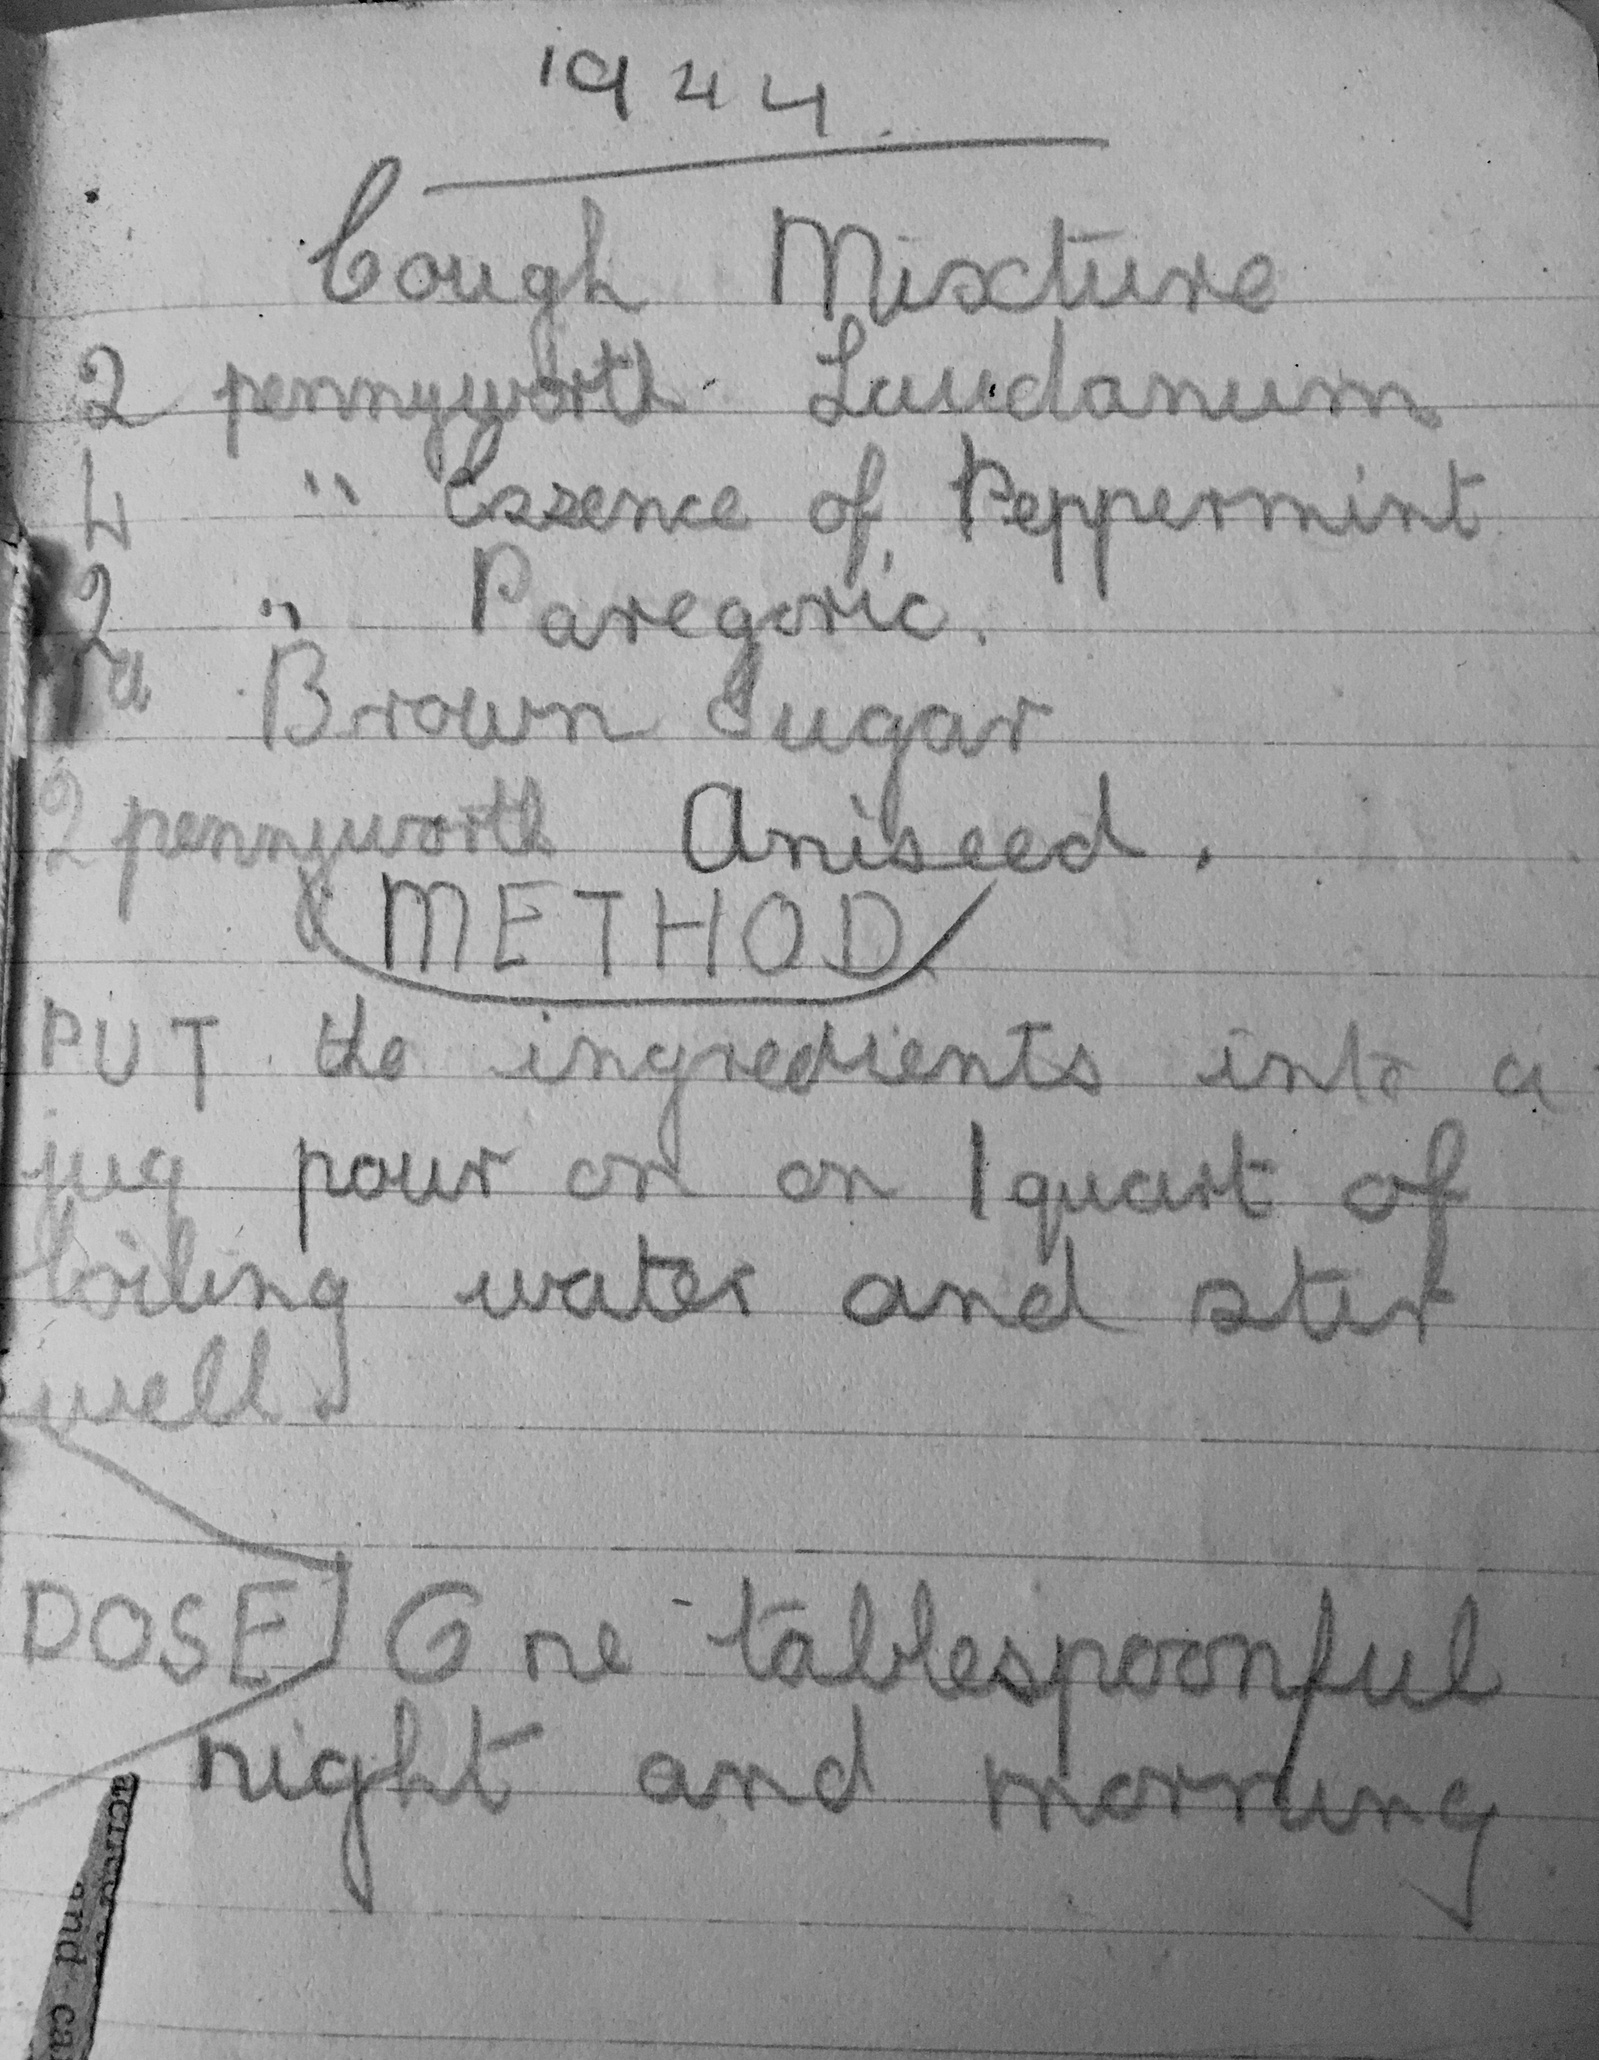 1944.
Cough Mixture
2 pennyworth Laudanum
4 " Essence of Peppermint
2 " Paregoric.
Brown Sugar
2 pennyworth Aniseed.
METHOD.
PUT the ingredients into a
jug pour on on 1 quart of
boiling water and stir
well.
DOSE One tablespoonful
night and morning
and ca